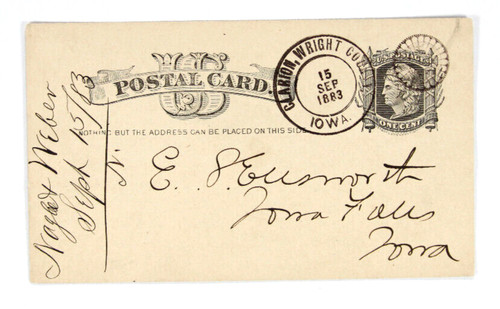 US
POSTAL CARD.
NOTHING BUT THE ADDRESS CAN BE PLACED ON THIS SIDE
CLARION, WRIGHT CO.
15
SEP
1883
IOWA.
ONE CENT
E. S. Ellsworth
Iowa Falls
Iowa
Weber
Sept 15/83